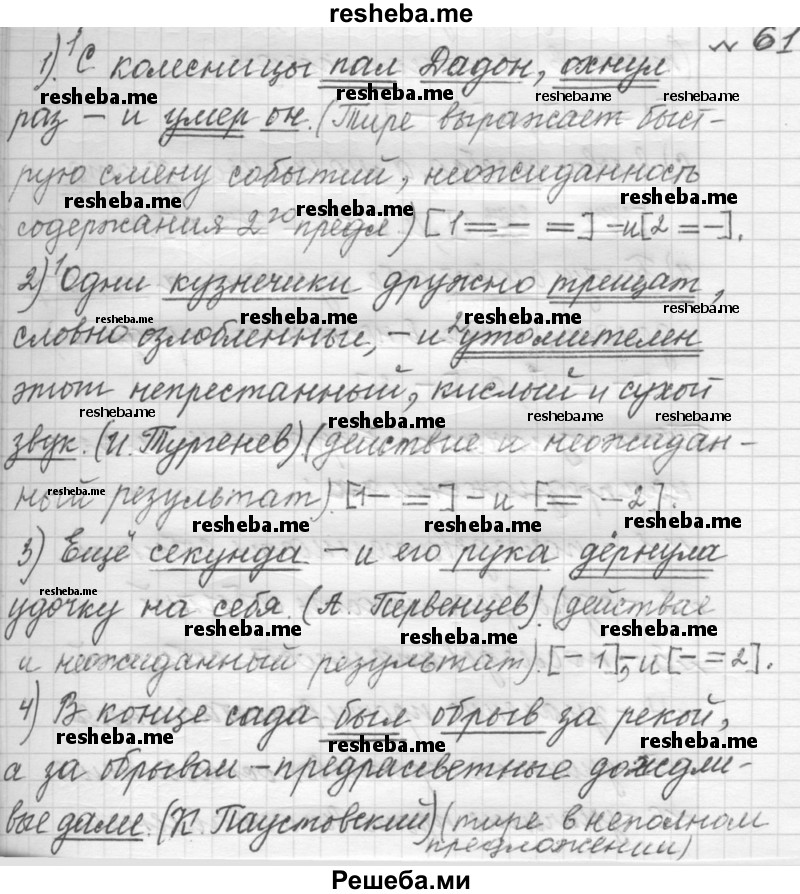 resheba.me
№ 61
1) ¹С колесницы пал Дадон, охнул
resheba.me resheba.me resheba.me
раз – и умер он. (Тире выражает быст-
рую смену событий, неожиданность
resheba.me resheba.me resheba.me
содержания 2го предл.) [1 = – =] – и [2 = –].
2) ¹Одни кузнечики дружно трещат,
resheba.me resheba.me resheba.me
словно озлобленные, – и ²утомителен
этот непрестанный, кислый и сухой
resheba.me resheba.me resheba.me resheba.me
звук. (И. Тургенев) (действие и неожидан-
ный результат). [1 – =] – и [= – 2].
resheba.me
resheba.me resheba.me resheba.me
3) Ещё секунда – и его рука дёрнула
resheba.me
удочку на себя. (А Первенцев). (действае
resheba.me resheba.me resheba.me
и неожиданный результат). [– 1], – и [– = 2].
4) В конце сада был обрыв за рекой,
resheba.me resheba.me resheba.me
а за обрывом – предрассветные дождли-
вые дали. (К. Паустовский) (тире в неполном
предложении)
Решеба.ми